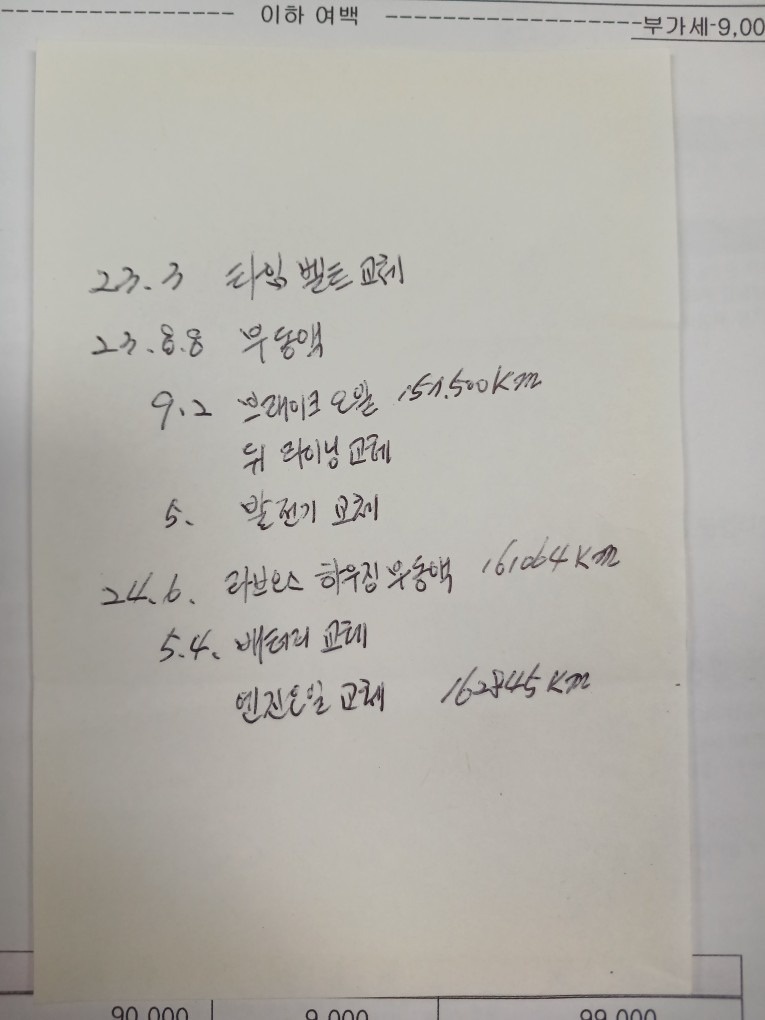 이하 여백
부가세-9,00
23.3 타임 벨트 교체
23.8.8 부동액
9.2 브레이크 오일 157.500km
뒤 라이닝 교체
5. 발전기 교체
24.6. 라브오스 하우징 부동액 161064km
5.4. 배터리 교체
엔진오일 교체 162845km
90,000 9,000 99,000